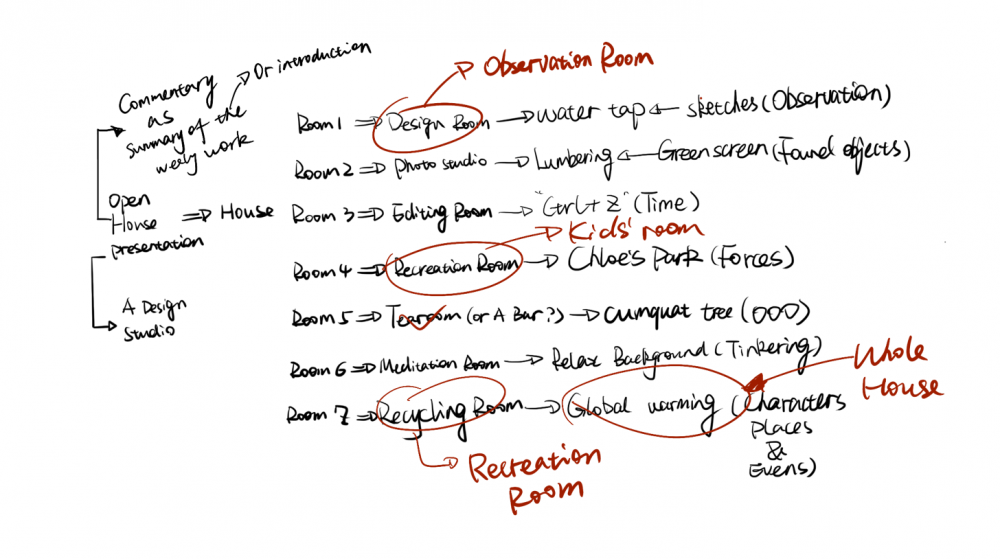 Commentary
as
summary of the
weely work
Or introduction
Observation Room
Room 1 ⇒ Design Room → water tap ← sketches (Observation)
Room 2 ⇒ photo studio → Lumbering ← Green screen (Found objects)
Open
House
presentation
⇒ House
Room 3 ⇒ Editing Room → "Ctrl + Z" (Time)
Kids' room
Room 4 ⇒ Recreation Room → Chloe's Park (Forces)
A Design
Studio
Room 5 ⇒ Tearoom (or A Bar?) → cumquat tree (OOO)
Room 6 ⇒ Meditation Room → Relax Background (Tinkering)
Whole
House
Room 7 ⇒ Recycling Room → Global warming (Characters
places
&
Evens)
Recreation
Room